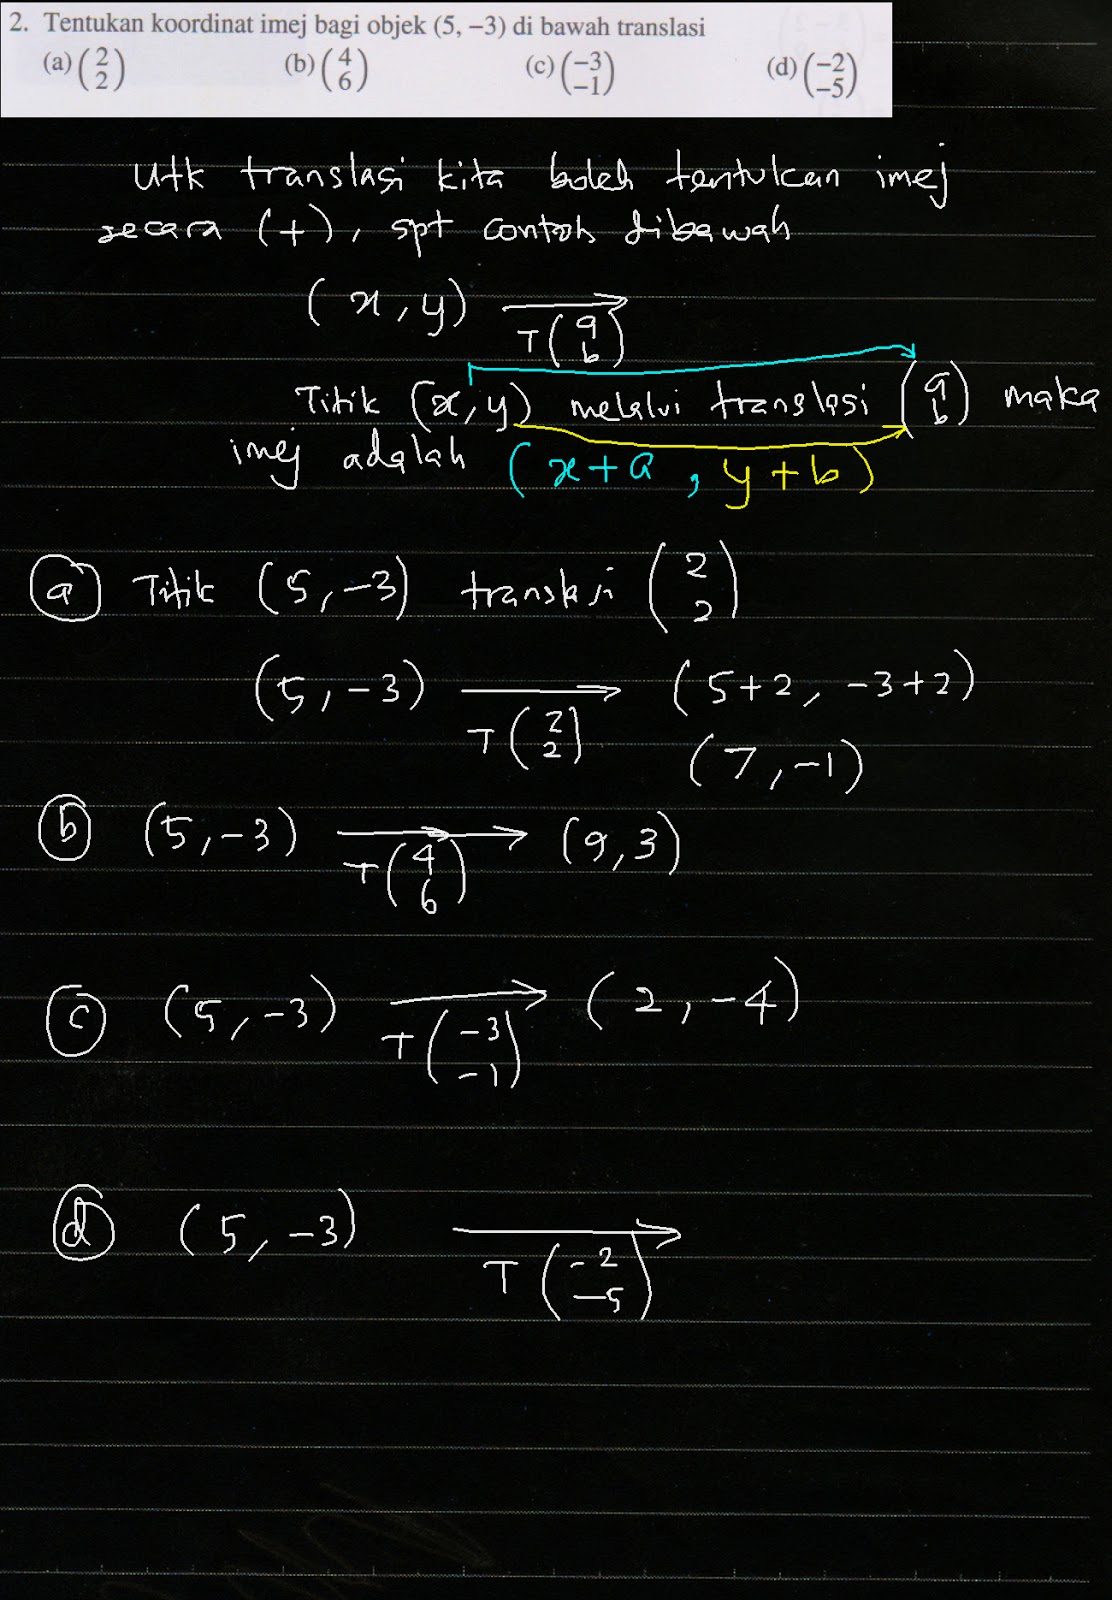 2. Tentukan koordinat imej bagi objek (5, −3) di bawah translasi
(a) (2 2) (b) (4 6) (c) (−3 −1) (d) (−2 −5)
Utk translasi kita boleh tentukan imej
secara (+), spt contoh dibawah
(x, y) → T(a b)
Titik (x, y) melalui translasi (a b) maka
imej adalah (x + a, y + b)
(a) Titik (5, −3) translasi (2 2)
(5, −3) → T(2 2) (5+2, −3+2)
(7, −1)
(b) (5, −3) → T(4 6) (9, 3)
(c) (5, −3) → T(−3 −1) (2, −4)
(d) (5, −3) → T(−2 −5)